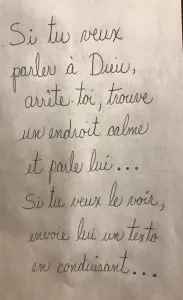 Si tu veux
parler à Dieu,
arrête-toi, trouve
un endroit calme
et parle lui...
Si tu veux le voir,
envoie lui un texto
en conduisant...